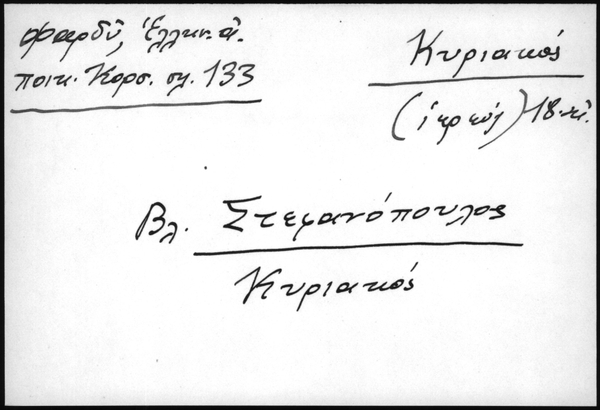 Φαρδύ, Ἑλλην. ἀ.
ποικ. Κορσ. σλ. 133
Κυριακός
(ἱερεύς) 18. αἰ.
Βλ. Στεφανόπουλος
Κυριακός